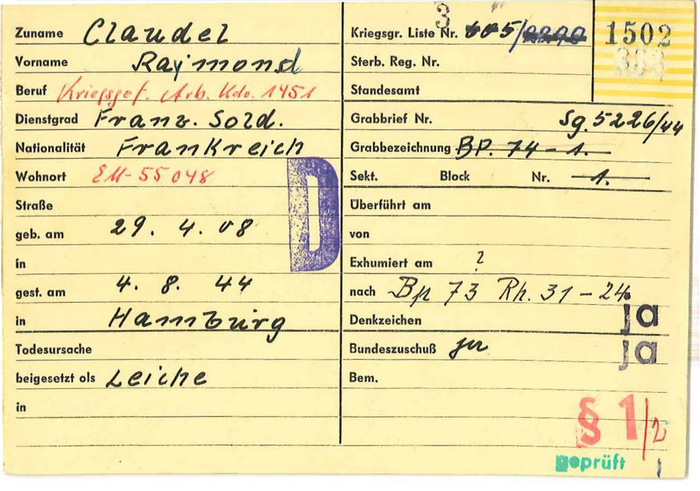 Zuname Claudel
Vorname Raymond
Beruf Kriegsgef. Arb. Kdo. 1451
Dienstgrad Franz. Sold.
Nationalität Frankreich
Wohnort EM-55048
Straße
geb. am 29. 4. 08
in
gest. am 4. 8. 44
in Hamburg
Todesursache
beigesetzt als Leiche
in
D
3
Kriegsgr. Liste Nr. 605/
1502
333
Sterb. Reg. Nr.
Standesamt
Grabbrief Nr. Sg. 5226/44
Grabbezeichnung BP. 74-1.
Sekt. Block Nr. 1.
Überführt am
von
Exhumiert am ?
nach Bp 73 Rh. 31-24
Denkzeichen ja
Bundeszuschuß ja
Bem.
§ 1/2
geprüft